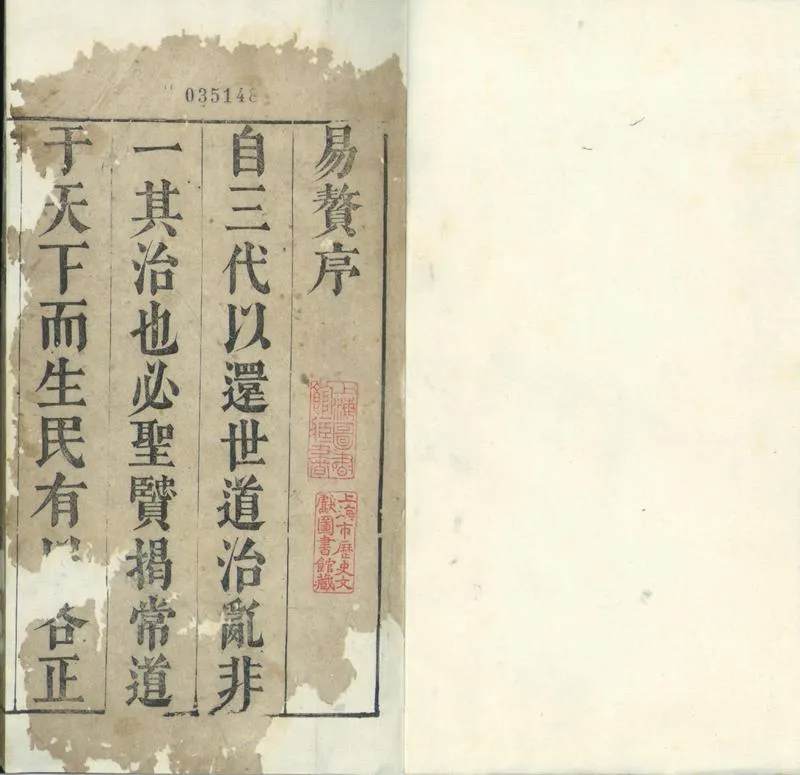 035148
易贅序
自三代以還世道治亂非
一其治也必聖賢揭常道
于天下而生民有 合正
上海圖書館藏書
上海市歷史文獻圖書館藏